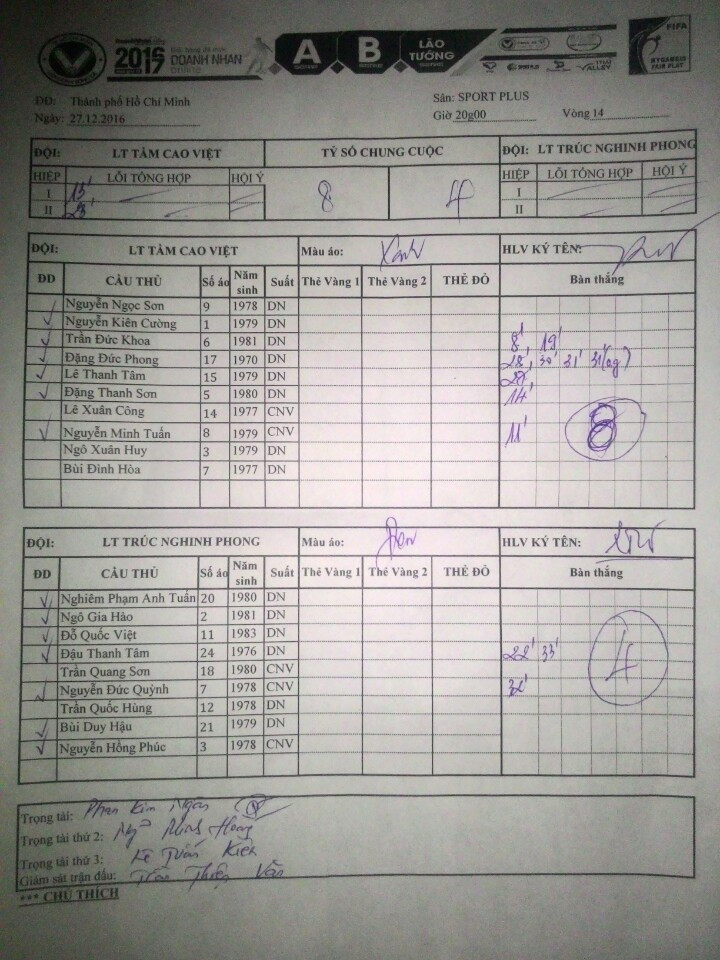 2016
2017
DOANH NHÂN
A
B
LÃO TƯỚNG
FIFA
FAIR PLAY
ĐĐ: Thành phố Hồ Chí Minh
Sân: SPORT PLUS
Ngày: 27.12.2016
Giờ 20g00 Vòng 14
ĐỘI: LT TÂM CAO VIỆT TỶ SỐ CHUNG CUỘC ĐỘI: LT TRÚC NGHINH PHONG
HIỆP LỖI TỔNG HỢP HỘI Ý 8 4 HIỆP LỖI TỔNG HỢP HỘI Ý
I 13' I
II 23' II
ĐỘI: LT TÂM CAO VIỆT Màu áo: Xanh HLV KÝ TÊN:
ĐD CẦU THỦ Số áo Năm sinh Suất Thẻ Vàng 1 Thẻ Vàng 2 THẺ ĐỎ Bàn thắng
Nguyễn Ngọc Sơn 9 1978 DN
Nguyễn Kiên Cường 1 1979 DN
Trần Đức Khoa 6 1981 DN 8' 19'
Đặng Đức Phong 17 1970 DN 28', 30' 31' 31'(og)
Lê Thanh Tâm 15 1979 DN
Đặng Thanh Sơn 5 1980 DN 14'
Lê Xuân Công 14 1977 CNV
Nguyễn Minh Tuấn 8 1979 CNV 11' 8
Ngô Xuân Huy 3 1979 DN
Bùi Đình Hòa 7 1977 DN
ĐỘI: LT TRÚC NGHINH PHONG Màu áo: Đen HLV KÝ TÊN:
ĐD CẦU THỦ Số áo Năm sinh Suất Thẻ Vàng 1 Thẻ Vàng 2 THẺ ĐỎ Bàn thắng
Nghiêm Phạm Anh Tuấn 20 1980 DN
Ngô Gia Hào 2 1981 DN
Đỗ Quốc Việt 11 1983 DN
Đậu Thanh Tâm 24 1976 DN 22' 33' 4
Trần Quang Sơn 18 1980 CNV
Nguyễn Đức Quỳnh 7 1978 CNV 32'
Trần Quốc Hùng 12 1978 DN
Bùi Duy Hậu 21 1979 DN
Nguyễn Hồng Phúc 3 1978 CNV
Trọng tài: Phan Kim Ngân
Trọng tài thứ 2: Ng Minh Hoàng
Trọng tài thứ 3: Lê Tuấn Kiên
Giám sát trận đấu: Trần Thiện Văn
*** CHÚ THÍCH